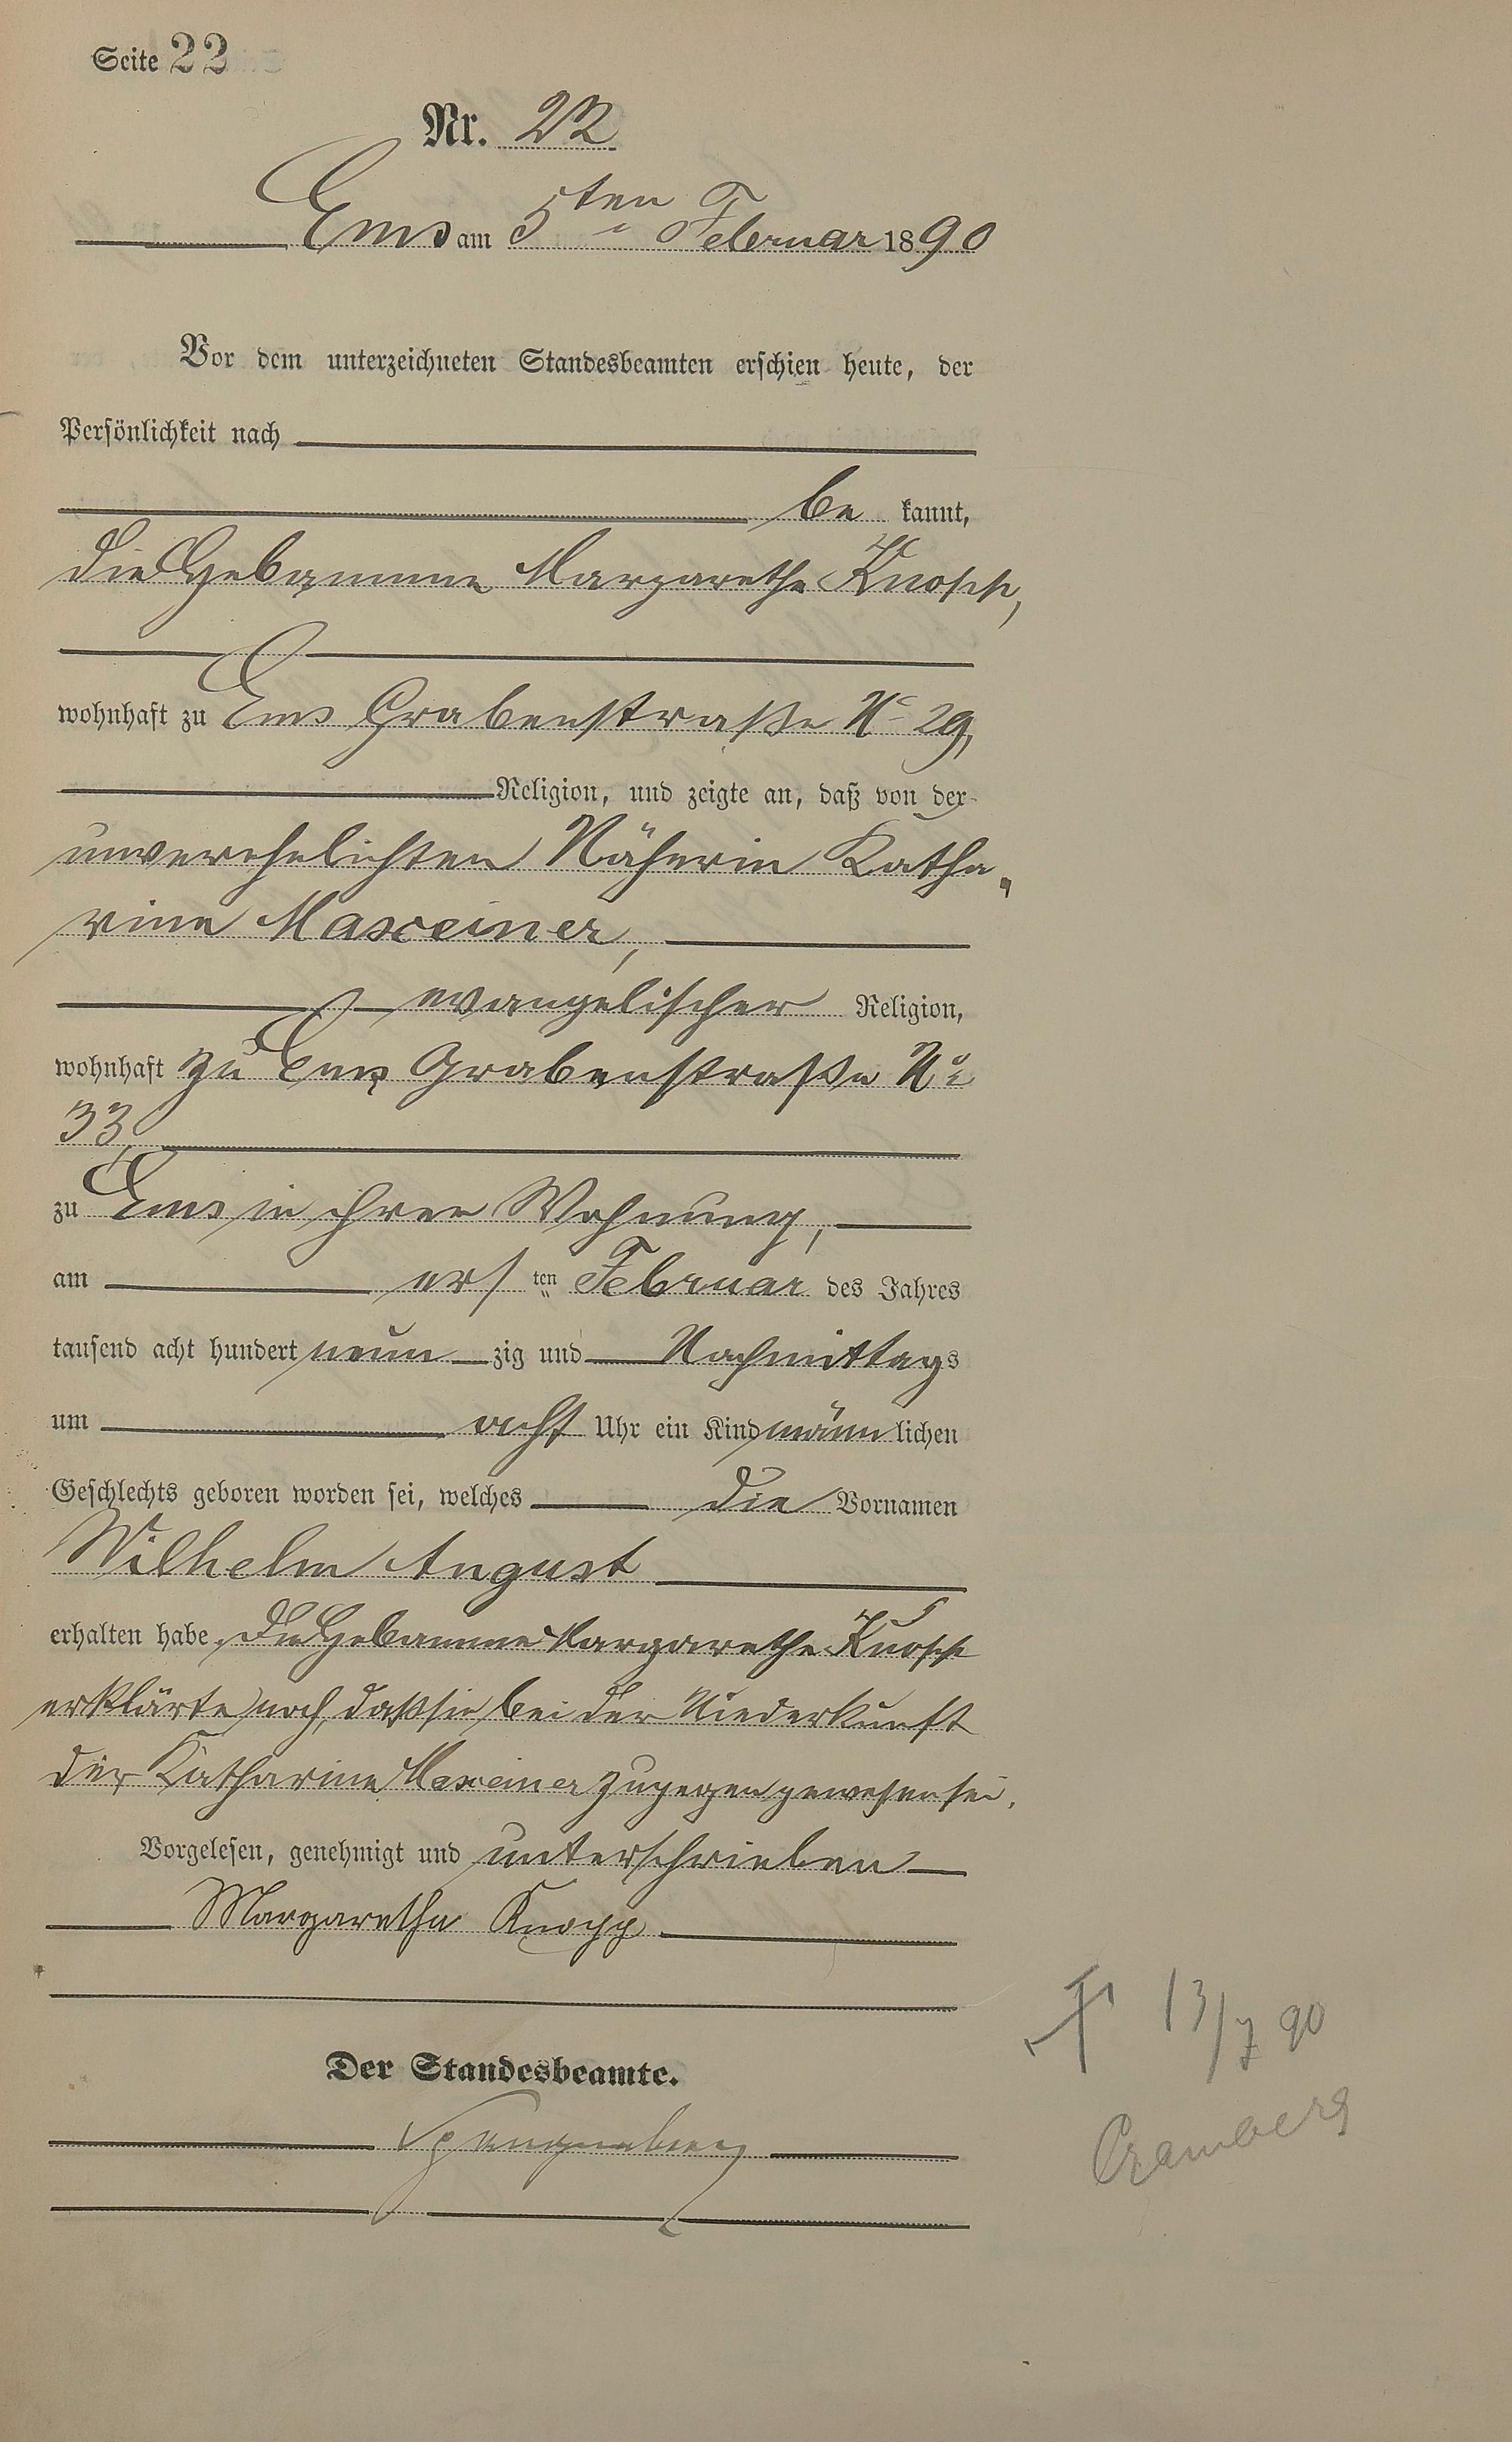 Seite 22
Nr. 22
Ems am 5ten Februar 1890
Vor dem unterzeichneten Standesbeamten erschien heute, der
Persönlichkeit nach
be kannt,
die Hebamme Margarethe Knopp,
wohnhaft zu Ems Grabenstraße No 29,
Religion, und zeigte an, daß von der
unverehelichten Näherin Katha-
rine Maxeiner,
evangelischer Religion,
wohnhaft zu Ems Grabenstraße No
33,
zu Ems in ihrer Wohnung,
am ersten Februar des Jahres
tausend acht hundert neunzig und Nachmittags
um acht Uhr ein Kind männlichen
Geschlechts geboren worden sei, welches die Vornamen
Wilhelm August
erhalten habe. Die Hebamme Margarethe Knopp
erklärte noch, daß sie bei der Niederkunft
der Katharine Maxeiner zugegen gewesen sei.
Vorgelesen, genehmigt und unterschrieben
Margaretha Knopp
Der Standesbeamte.
Spangenberg
† 13/7 90
Cramberg